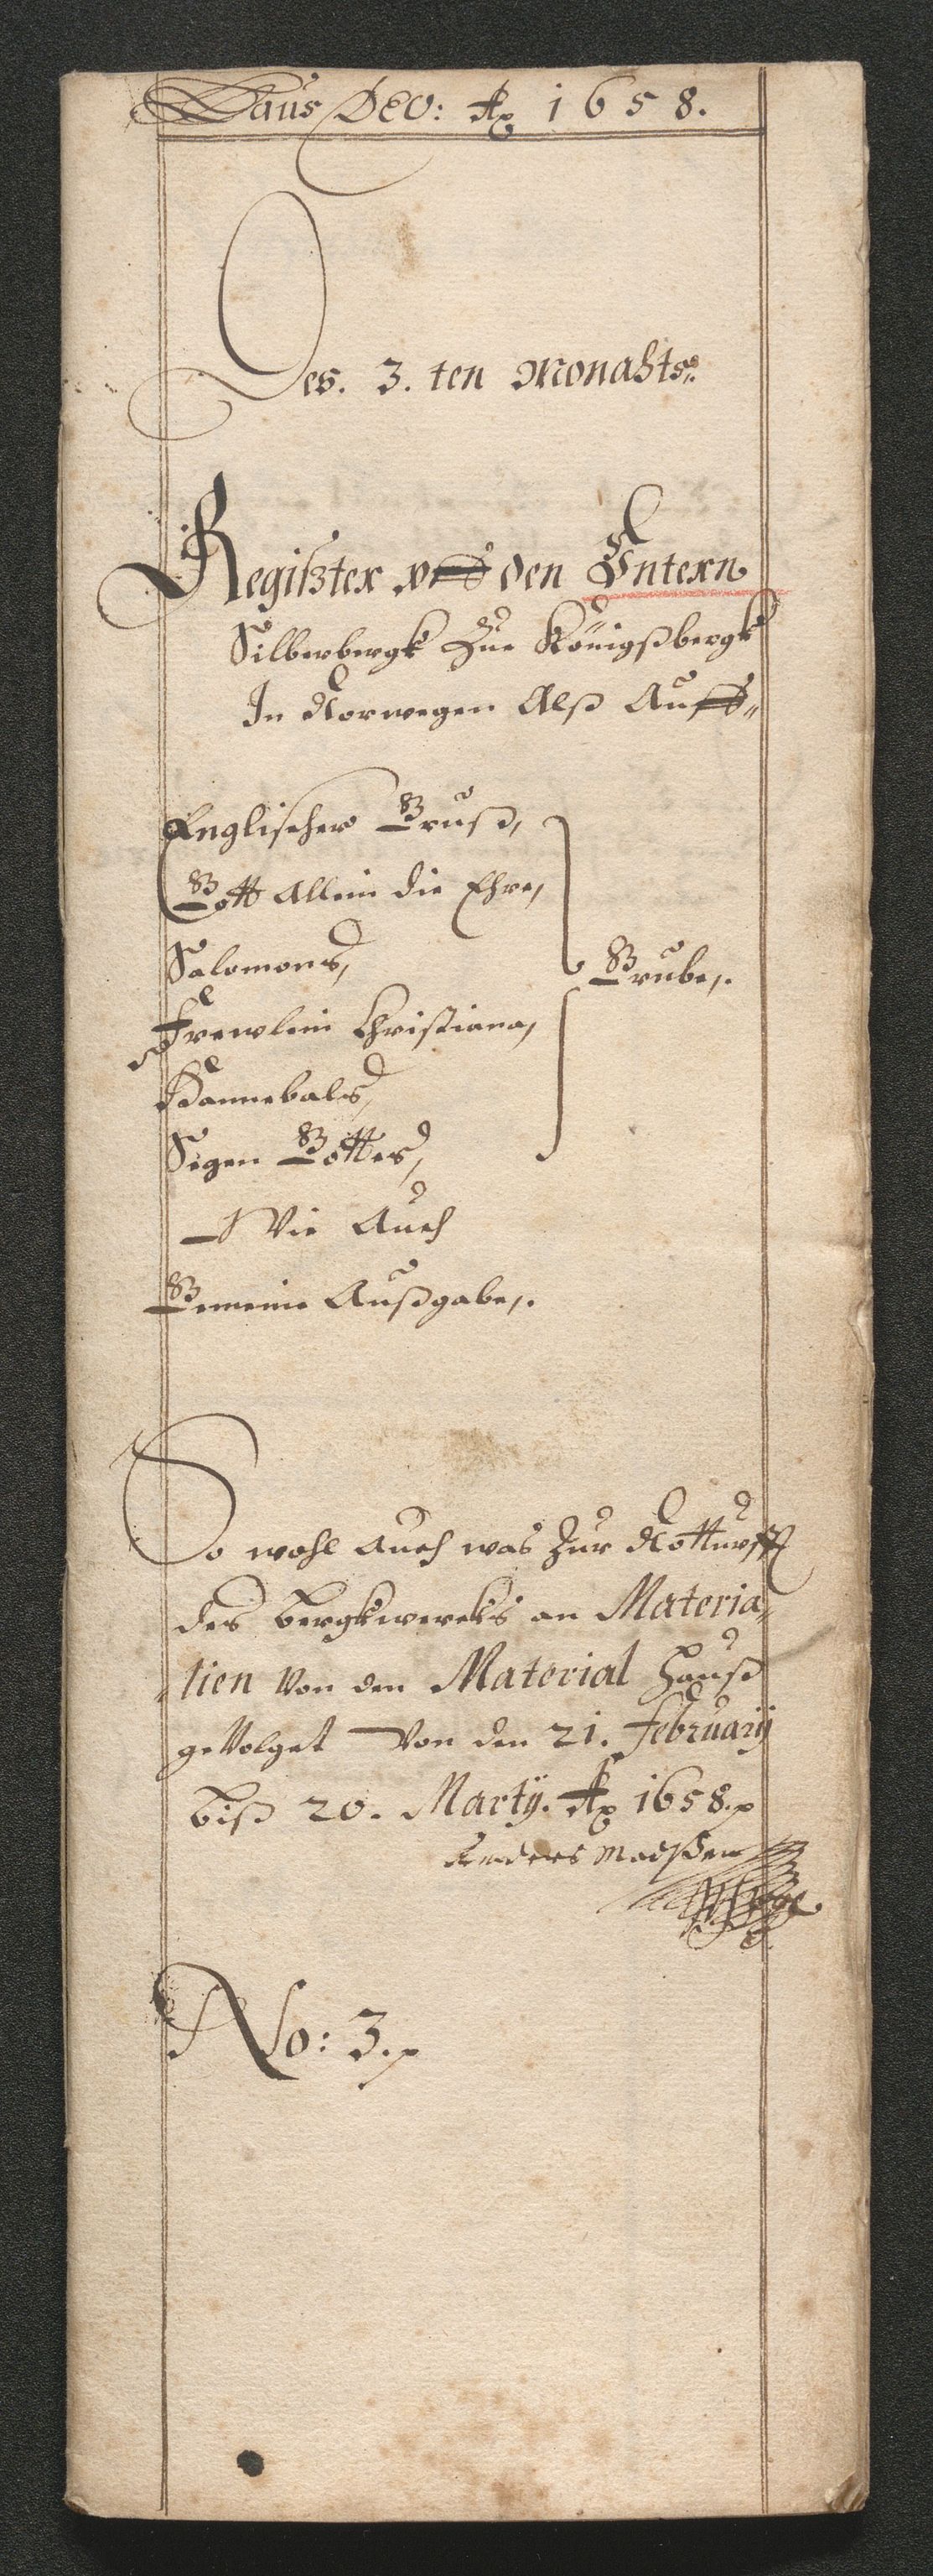 Laus DEO: Ao 1658.
Des. 3. ten Monahts.
Register vff den Vntern
Silberbergk Zue Königßbergk
In Norwegen Alß Auff
Englischer Gruß,
Gott Allein die Ehre,
Salomons,
Frewlein Christiana,
Hannebals,
Segen Gottes,
Grube,.
Wie Auch
Gemeine Außgabe,.
So wohl Auch was Zur Notturfft
des Bergkwercks an Materia
lien Von den Material Hauß
geVolget Von den 21. February
biß 20. Martij. Ao 1658.
Anders Madßen
No: 3.